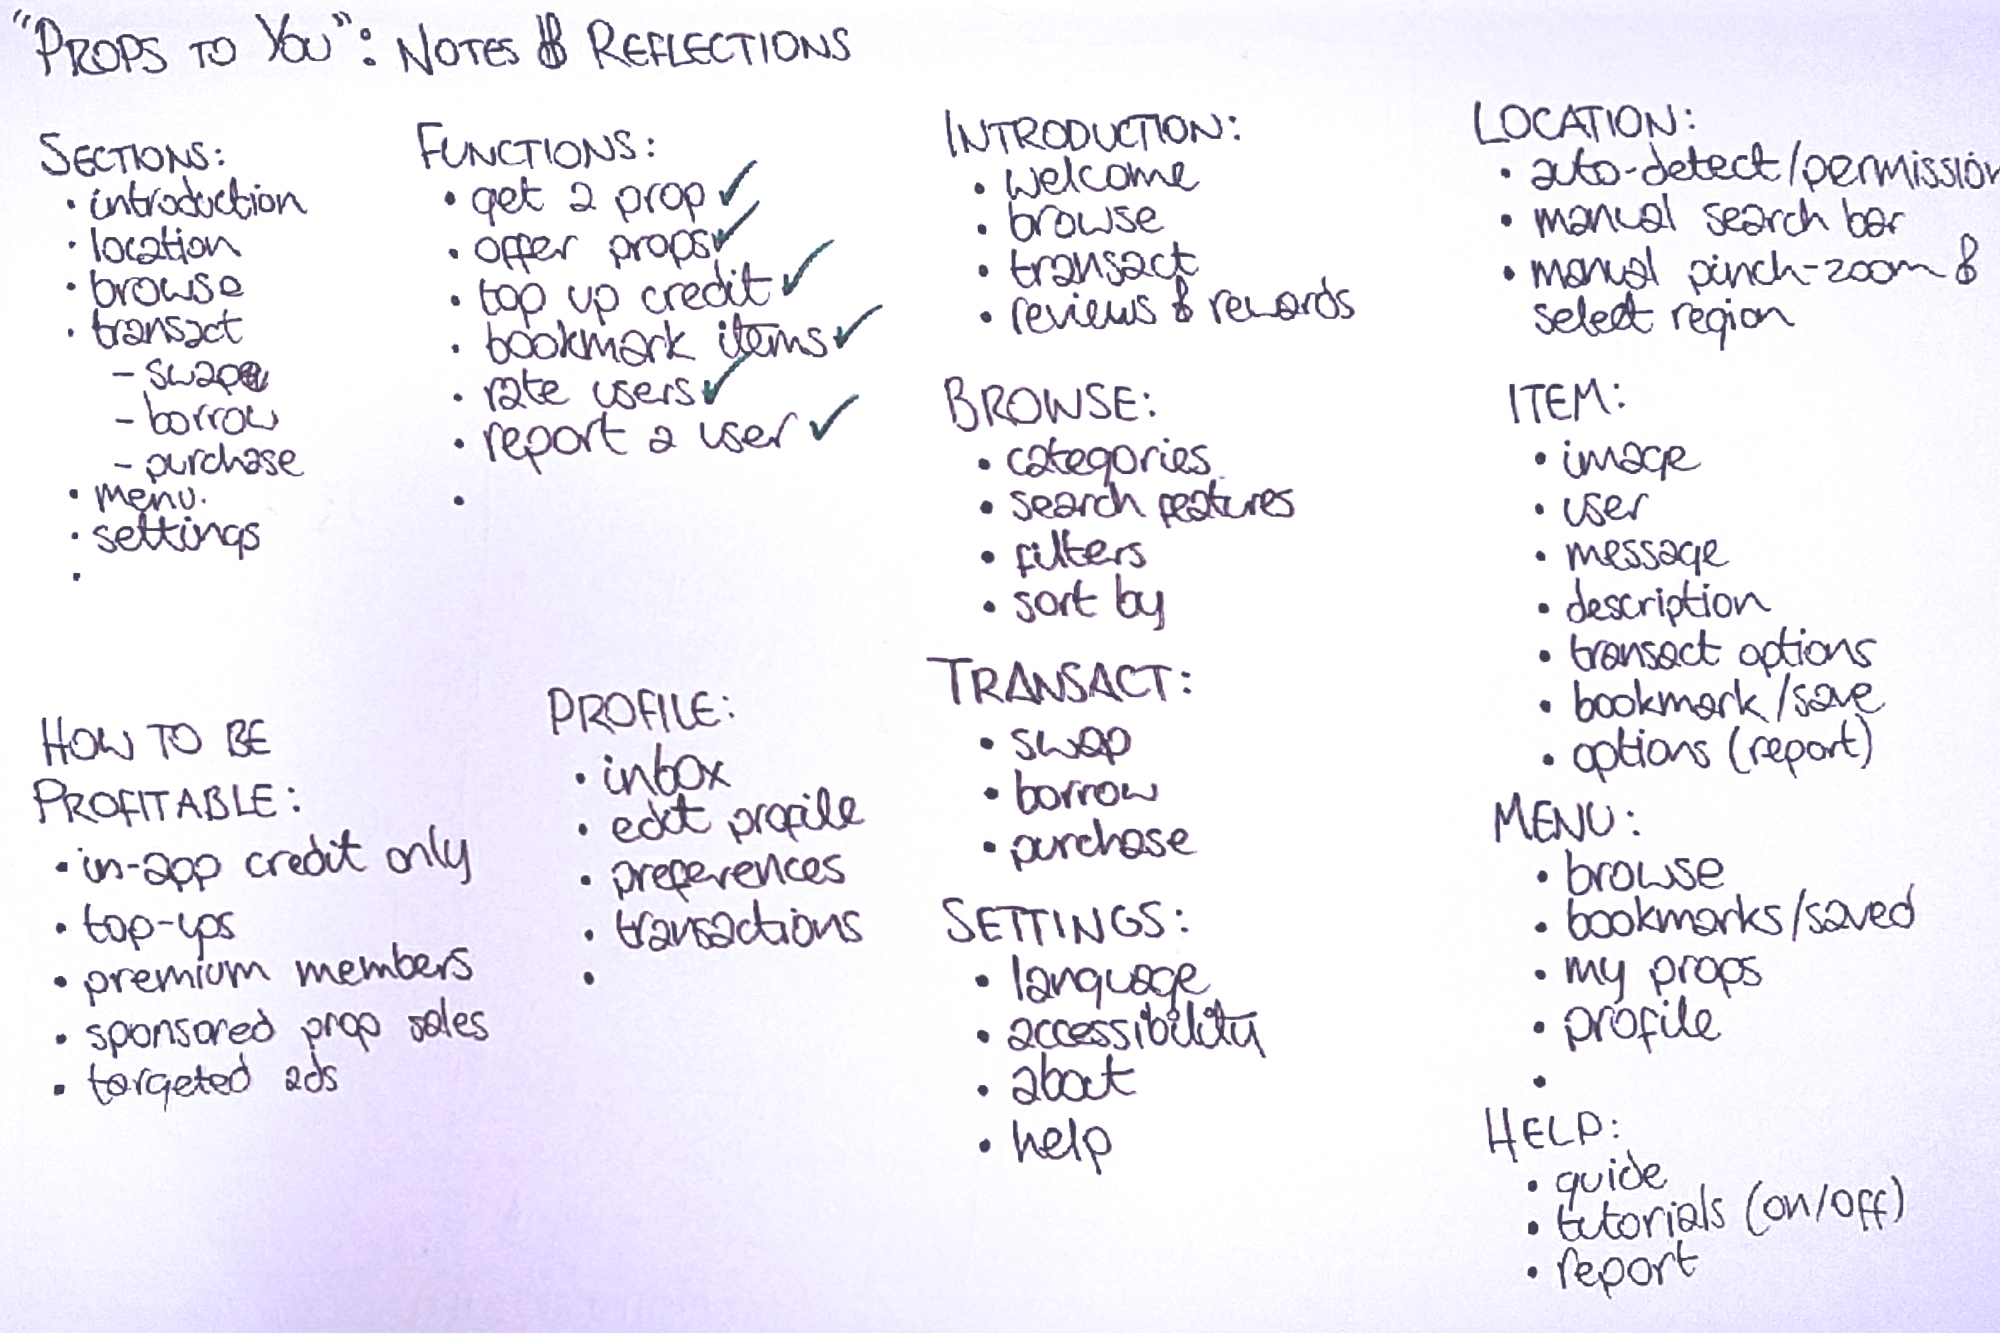 "PROPS TO YOU": NOTES & REFLECTIONS
SECTIONS:
• introduction
• location
• browse
• transact
– swap
– borrow
– purchase
• menu.
• settings
•
FUNCTIONS:
• get a prop ✓
• offer props ✓
• top up credit ✓
• bookmark items ✓
• rate users ✓
• report a user ✓
•
HOW TO BE
PROFITABLE:
• in-app credit only
• top-ups
• premium members
• sponsored prop sales
• targeted ads
PROFILE:
• inbox
• edit profile
• preferences
• transactions
•
INTRODUCTION:
• welcome
• browse
• transact
• reviews & rewards
BROWSE:
• categories
• search features
• filters
• sort by
TRANSACT:
• swap
• borrow
• purchase
SETTINGS:
• language
• accessibility
• about
• help
LOCATION:
• auto-detect/permission
• manual search bar
• manual pinch-zoom &
select region
ITEM:
• image
• user
• message
• description
• transact options
• bookmark/save
• options (report)
MENU:
• browse
• bookmarks/saved
• my props
• profile
•
HELP:
• guide
• tutorials (on/off)
• report